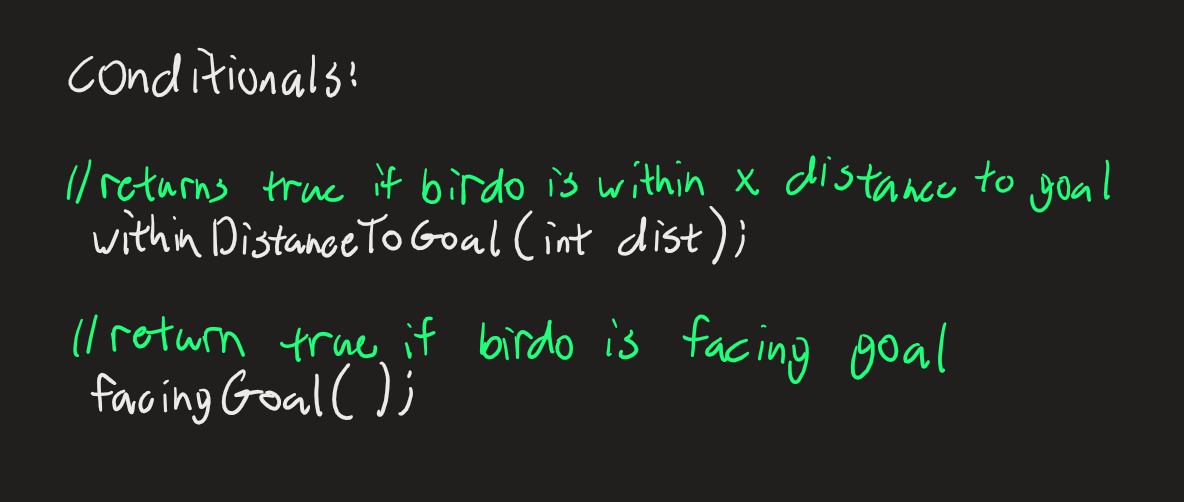 Conditionals:
//returns true if birdo is within x distance to goal
withinDistanceToGoal(int dist);
//return true if birdo is facing goal
facingGoal();